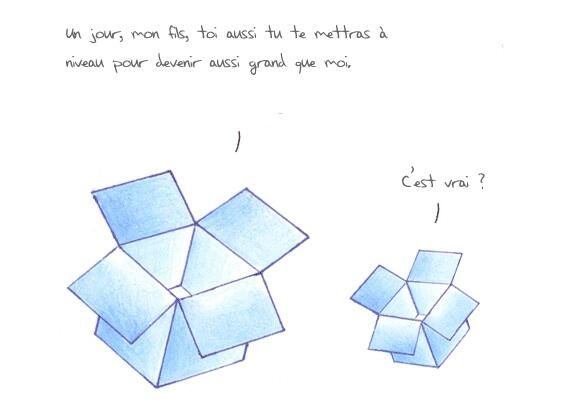 Un jour, mon fils, toi aussi tu te mettras à
niveau pour devenir aussi grand que moi.
C'est vrai ?